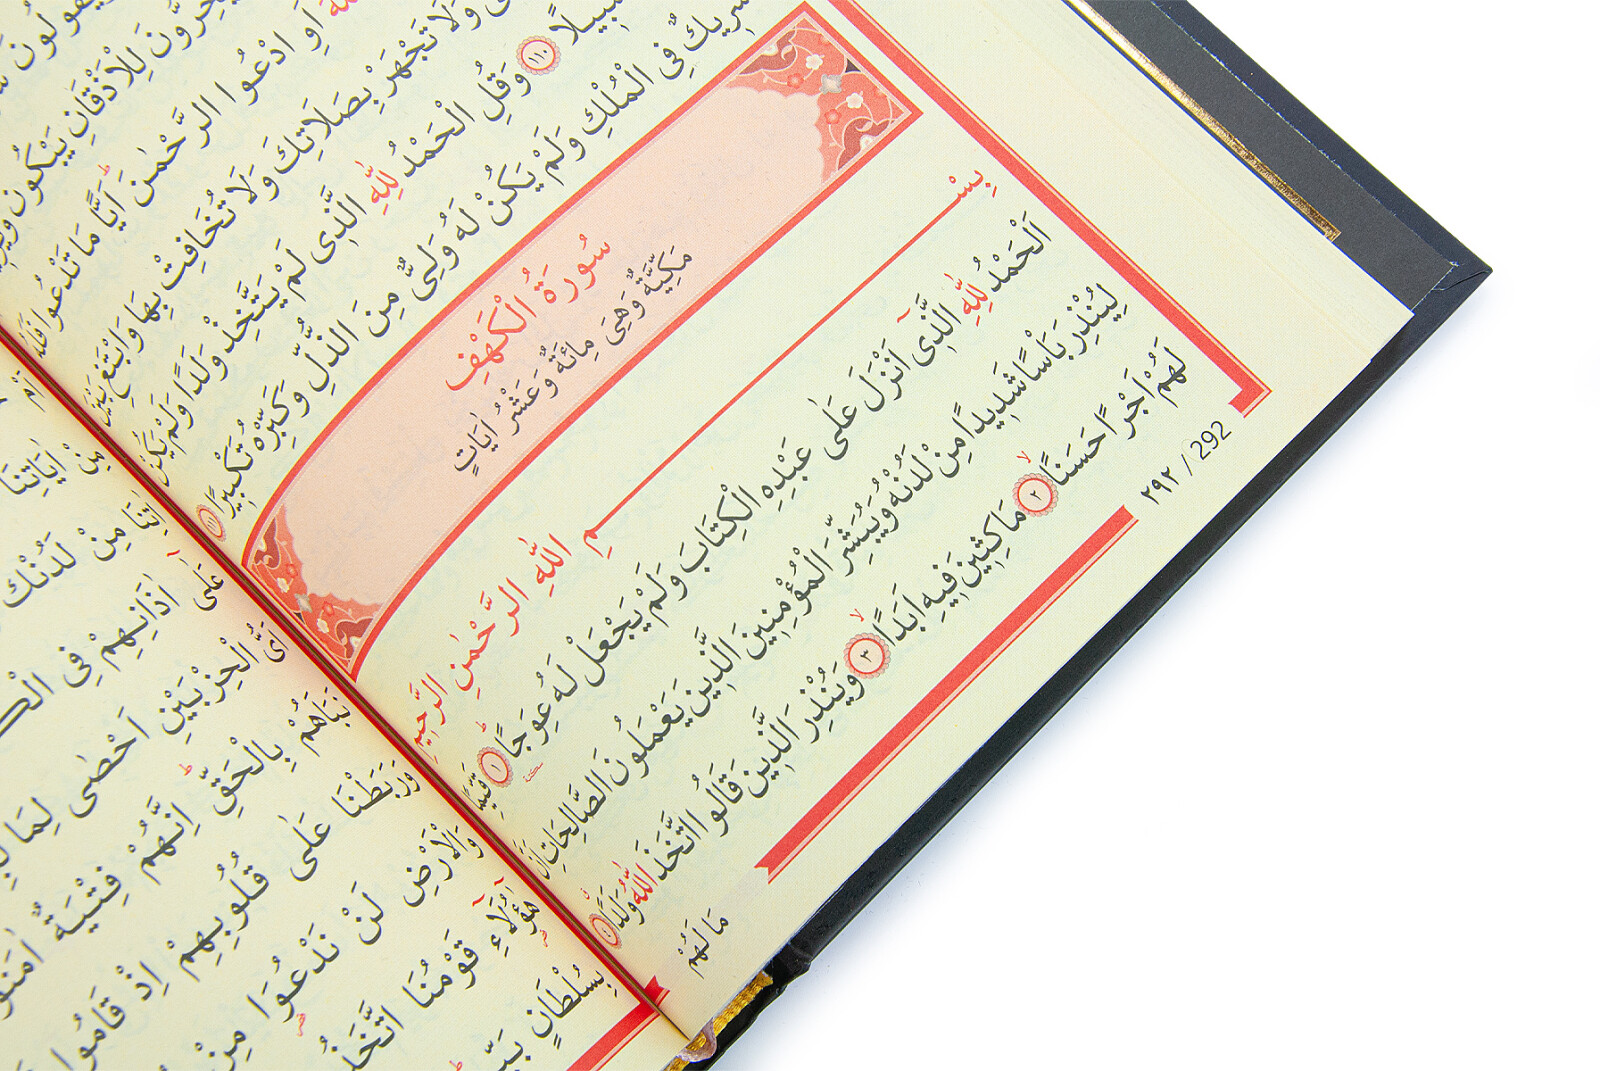 يَخِرُّونَ لِلْاَذْقَانِ يَبْكُونَ
اَوِ ادْعُوا الرَّحْمٰنَ اَيًّا مَا تَدْعُوا فَلَهُ
وَلَا تَجْهَرْ بِصَلَاتِكَ وَلَا تُخَافِتْ بِهَا وَابْتَغِ بَيْنَ
سَبِيلًا ﴿١١٠﴾ وَقُلِ الْحَمْدُ لِلّٰهِ الَّذِى لَمْ يَتَّخِذْ وَلَدًا وَلَمْ يَكُنْ
شَرِيكٌ فِى الْمُلْكِ وَلَمْ يَكُنْ لَهُ وَلِىٌّ مِنَ الذُّلِّ وَكَبِّرْهُ تَكْبِيرًا ﴿١١١﴾
سُورَةُ الْكَهْفِ
مَكِّيَّةٌ وَهِىَ مِائَةٌ وَعَشْرُ اٰيَاتٍ
بِسْمِ اللّٰهِ الرَّحْمٰنِ الرَّحِيمِ
اَلْحَمْدُ لِلّٰهِ الَّذِٓى اَنْزَلَ عَلٰى عَبْدِهِ الْكِتَابَ وَلَمْ يَجْعَلْ لَهُ عِوَجًا ﴿١﴾ قَيِّمًا
لِيُنْذِرَ بَأْسًا شَدِيدًا مِنْ لَدُنْهُ وَيُبَشِّرَ الْمُؤْمِنِينَ الَّذِينَ يَعْمَلُونَ الصَّالِحَاتِ اَنَّ
لَهُمْ اَجْرًا حَسَنًا ﴿٢﴾ مَاكِثِينَ فِيهِ اَبَدًا ﴿٣﴾ وَيُنْذِرَ الَّذِينَ قَالُوا اتَّخَذَ اللّٰهُ وَلَدًا ﴿٤﴾
مَا لَهُمْ
٢٩٢ / 292
اَمْ
مِنْ اٰيَاتِنَا
اٰتِنَا مِنْ لَدُنْكَ
عَلٰٓى اٰذَانِهِمْ فِى
اَىُّ الْحِزْبَيْنِ اَحْصٰى لِمَا
نَبَاَهُمْ بِالْحَقِّ اِنَّهُمْ فِتْيَةٌ
وَرَبَطْنَا عَلٰى قُلُوبِهِمْ اِذْ قَامُوا
وَالْاَرْضِ لَنْ نَدْعُوَا مِنْ
هٰٓؤُلَٓاءِ قَوْمُنَا
بِسُلْطَانٍ